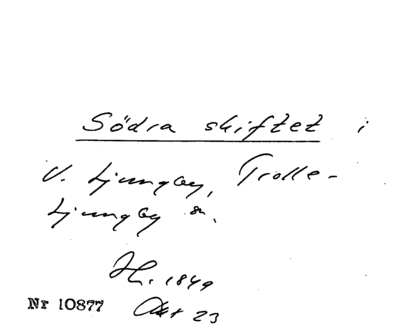 Södra skiftet i
V. Ljungby, Trolle-
Ljungby sn.
H. 1849
Nr 10877 Akt 23